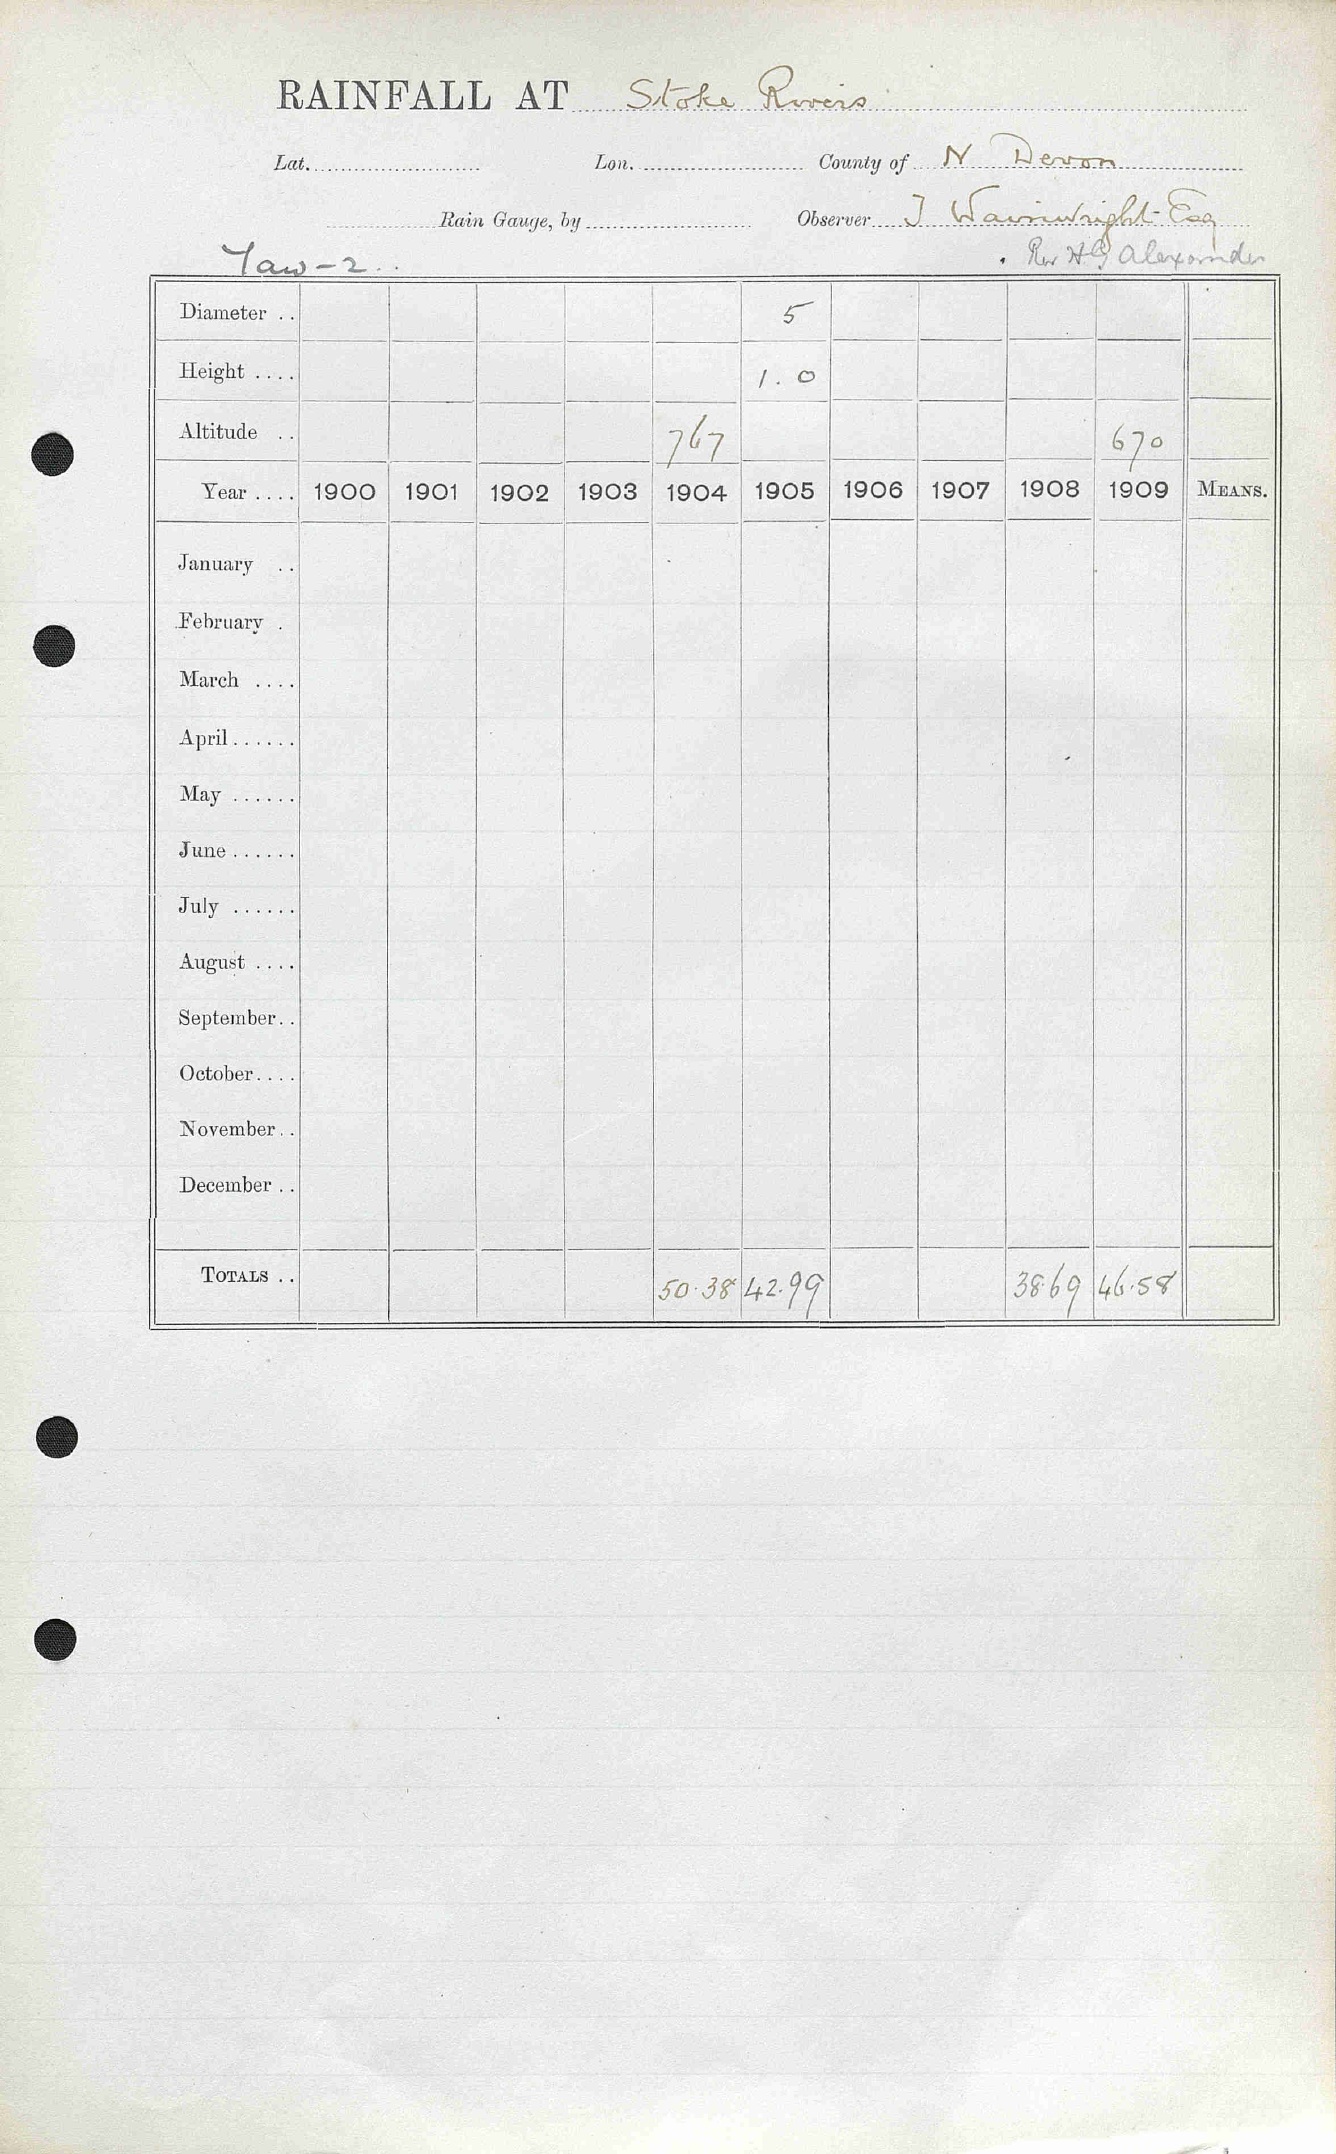 RAINFALL AT Stoke Rivers
Lat. Lon. County of N Devon
Rain Gauge, by Observer J Wainwright Esq
Taw-2. Rev HG Alexander
Diameter .. 5
Height .... 1.0
Altitude .. 767 670
Year .... 1900 1901 1902 1903 1904 1905 1906 1907 1908 1909 MEANS.
January ..
February .
March ....
April ......
May ......
June ......
July ......
August ....
September..
October....
November..
December ..
TOTALS .. 50.38 42.99 38.69 46.58